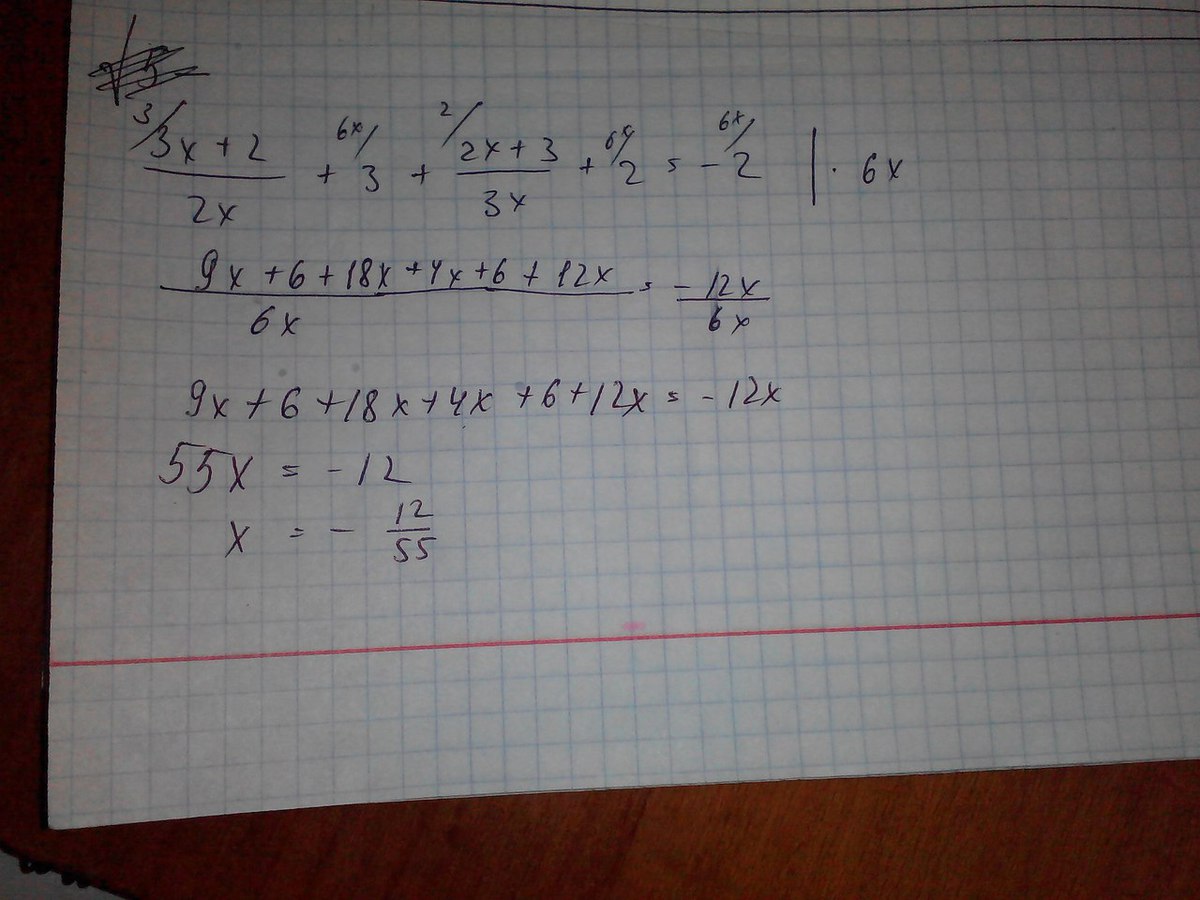 3/ 6x/ 2/ 6x/ 6x/
(3x + 2)/(2x) + 3 + (2x + 3)/(3x) + 2 = - 2 | · 6x
(9x + 6 + 18x + 4x + 6 + 12x)/(6x) = (- 12x)/(6x)
9x + 6 + 18x + 4x + 6 + 12x = - 12x
55x = - 12
x = - 12/55